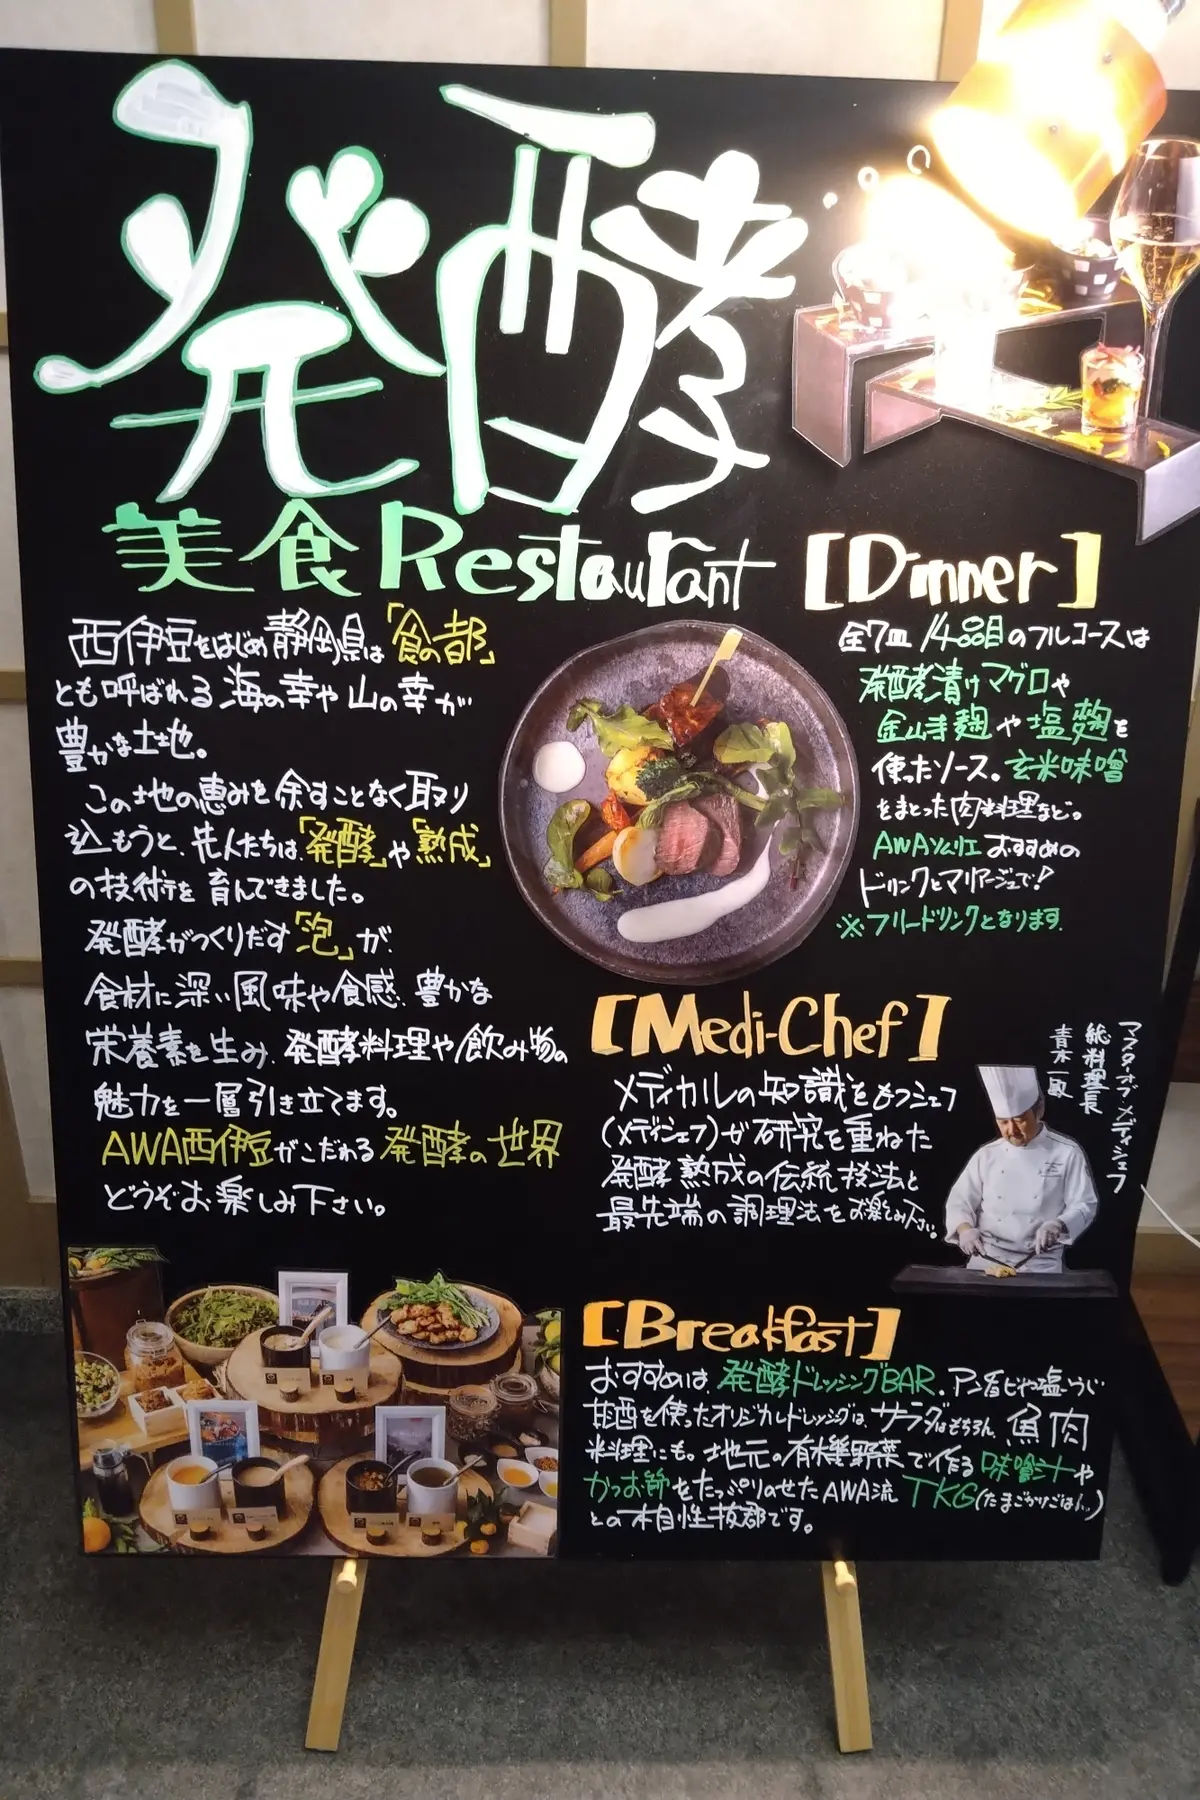 発酵
美食 Restaurant
西伊豆をはじめ静岡県は「食の都」
とも呼ばれる海の幸や山の幸が
豊かな土地。
この地の恵みを余すことなく取り
込もうと、先人たちは、「発酵」や「熟成」
の技術を育んできました。
発酵がつくりだす「泡」が、
食材に深い風味や食感、豊かな
栄養素を生み、発酵料理や飲み物の
魅力を一層引き立てます。
AWA西伊豆がこだわる発酵の世界
どうぞお楽しみ下さい。
[Dinner]
全7皿 14品目のフルコースは
発酵漬けマグロや
金山寺麹や塩麹を
使ったソース。玄米味噌
をまとった肉料理など。
AWAソムリエおすすめの
ドリンクとマリアージュで!
※フリードリンクとなります。
[Medi-Chef]
メディカルの知識をもつシェフ
(メディシェフ)が研究を重ねた
発酵熟成の伝統技法と
最先端の調理法をお楽しみ下さい。
マスターオブ・メディシェフ
総料理長
青木一敏
[Breakfast]
おすすめは、発酵ドレッシングBAR。アンチョビや塩こうじ
甘酒を使ったオリジナルドレッシングは、サラダはもちろん、魚肉
料理にも。地元の有機野菜で作る味噌汁や
かつお節をたっぷりのせたAWA流TKG(たまごかけごはん)
との相性抜群です。